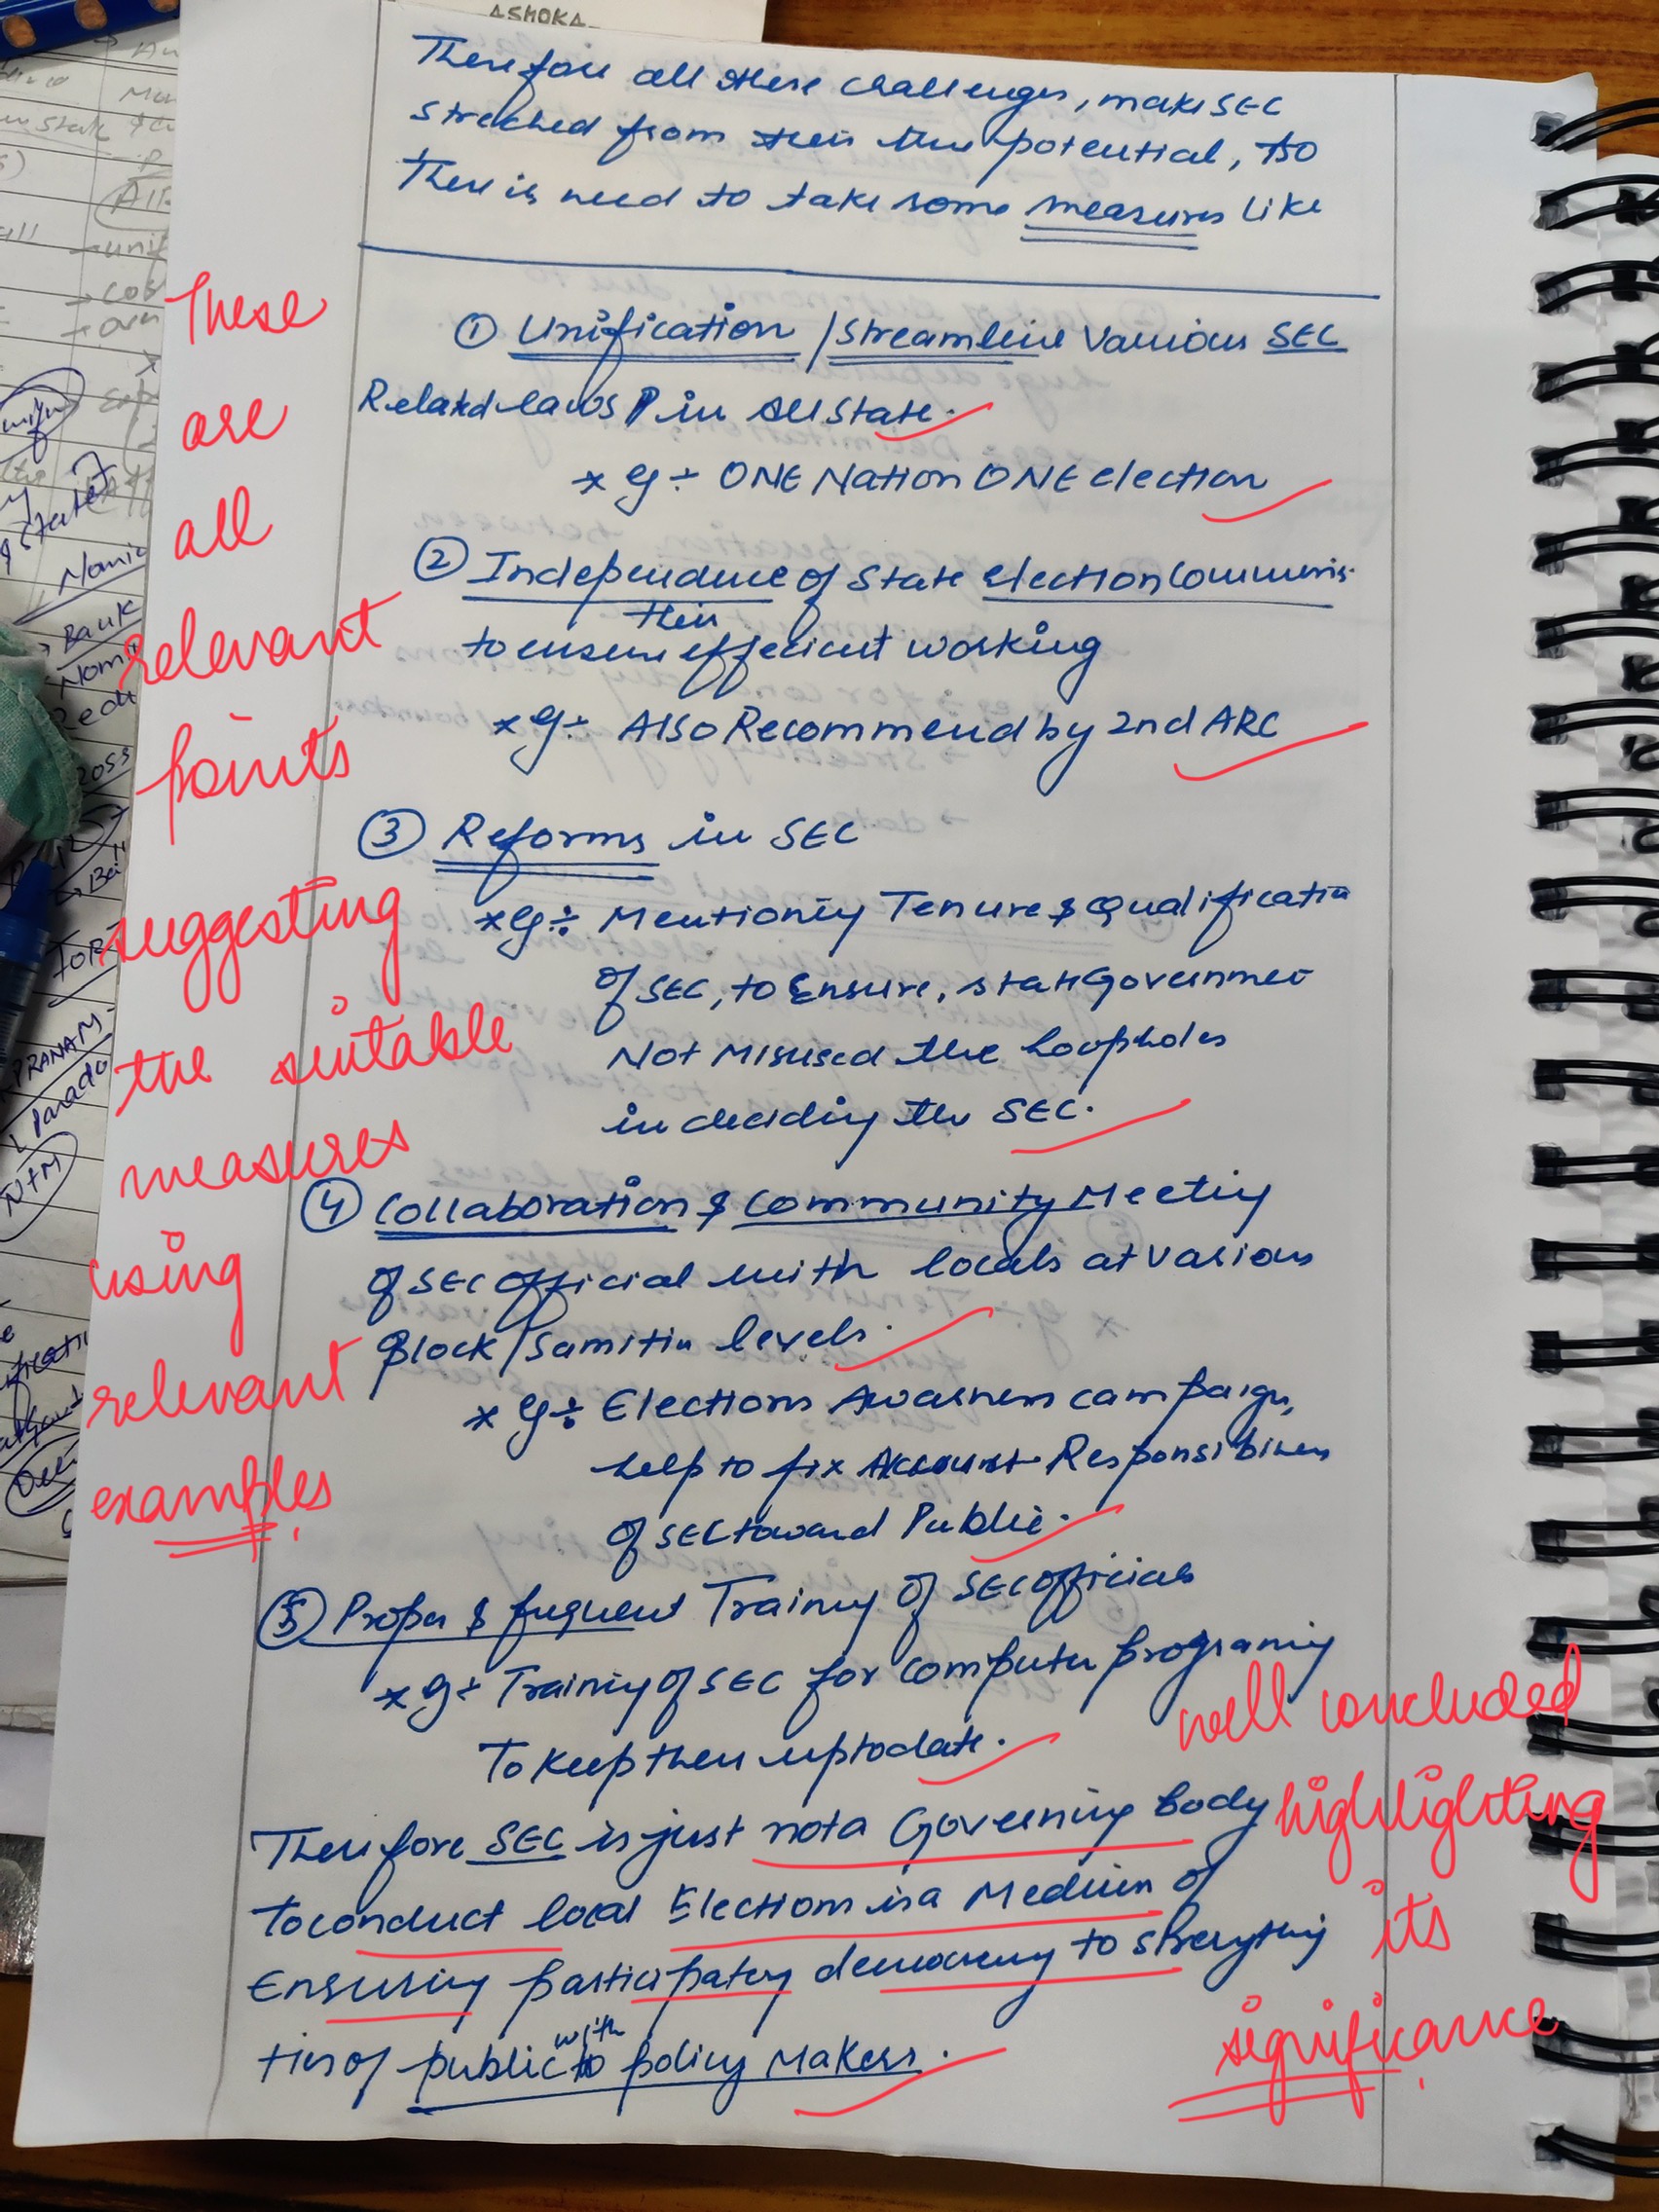 ASHOKA
Therefore all these challenges, make SEC
streched from their true potential, so
There is need to take some measures like
① Unification / Streamline Various SEC
Related laws in all State.
* eg ÷ ONE Nation ONE election
② Independence of State election Commis.
their
to ensure effecicut working
* eg ÷ Also Recommend by 2nd ARC
③ Reforms in SEC
* eg ÷ Mentioning Tenure & Qualification
of SEC, to Ensure, state Governmet
Not Misused the loopholes
in deciding the SEC.
④ Collaboration & Community Meeting
of SEC official with locals at various
Block / Samitis levels.
* eg ÷ Elections Awarness campaign,
help to fix Responsibilities
of SEC toward Public.
⑤ Proper & frequent Training of SEC officials
* eg ÷ Training of SEC for computer programing
To keep then up to date.
Therefore SEC is just not a Governing body
to conduct local Elections is a Medium of
Ensuring participatory democracy to
ties of public with policy Makers.
These
are
all
relevant
points
suggesting
the suitable
measures
using
relevant
examples.
well concluded
highlighting
its
significance.
all
unif
cos
State
Nomi
Bank
Nomi
Redu
PRANAM
Parado
NTM